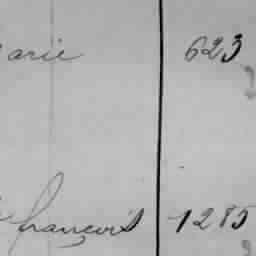 arie 623
françois 1285